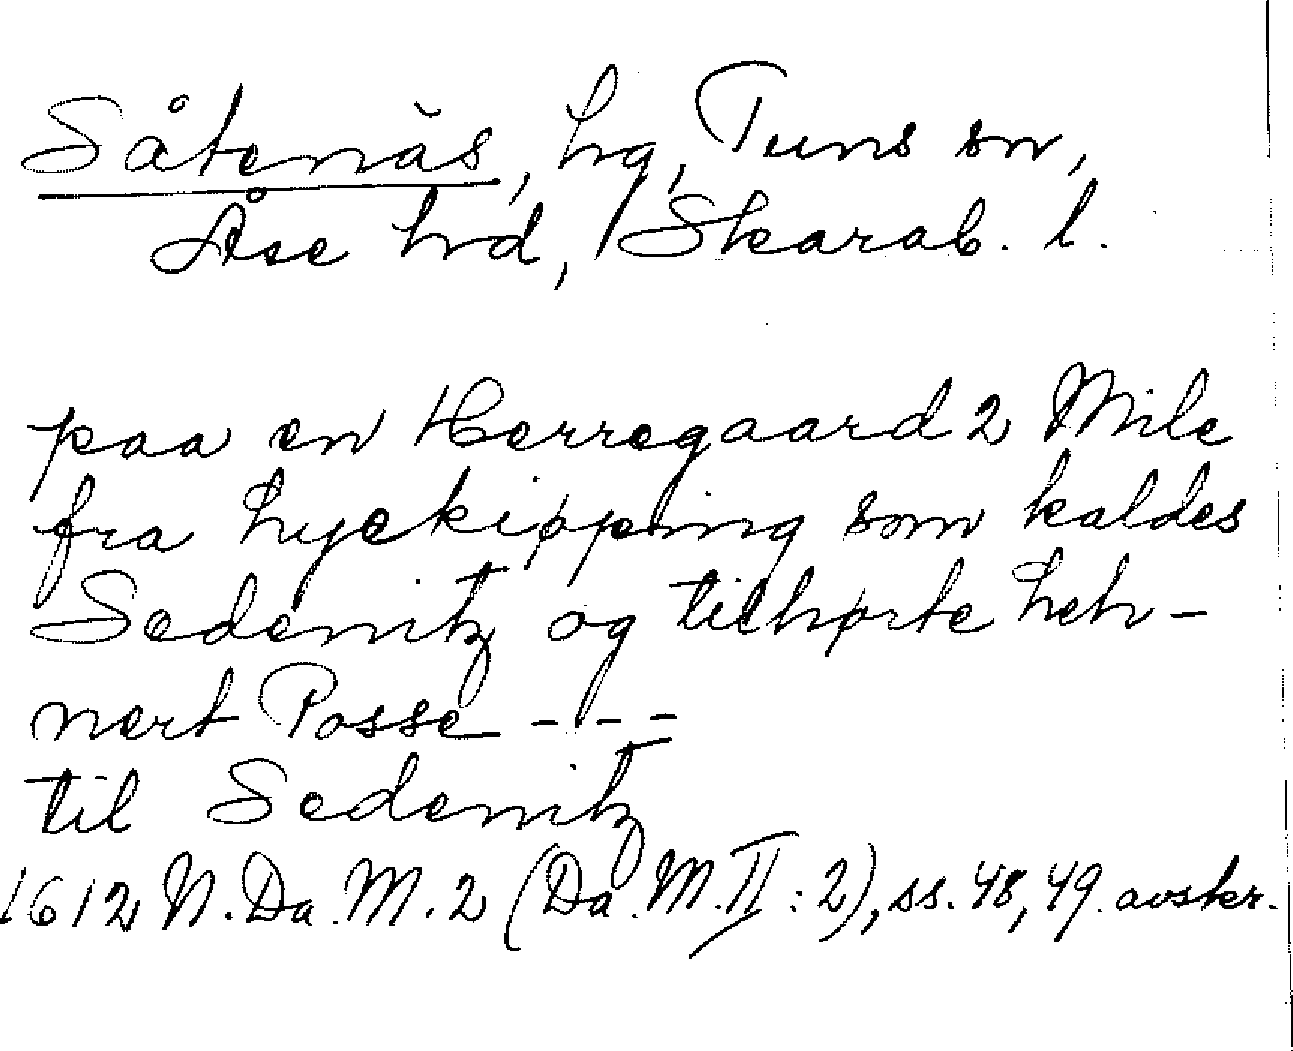 Såtenäs, hg, Tuns sn,
Åse hd, Skarab. l.
paa en Herregaard 2 Mile
fra Lyckipping som kaldes
Sedenitz og tilhørte Leh-
nert Posse - - -
til Sedenitz
1612 N. Da. M. 2 (Da. M. II : 2), ss. 48, 49. avskr.